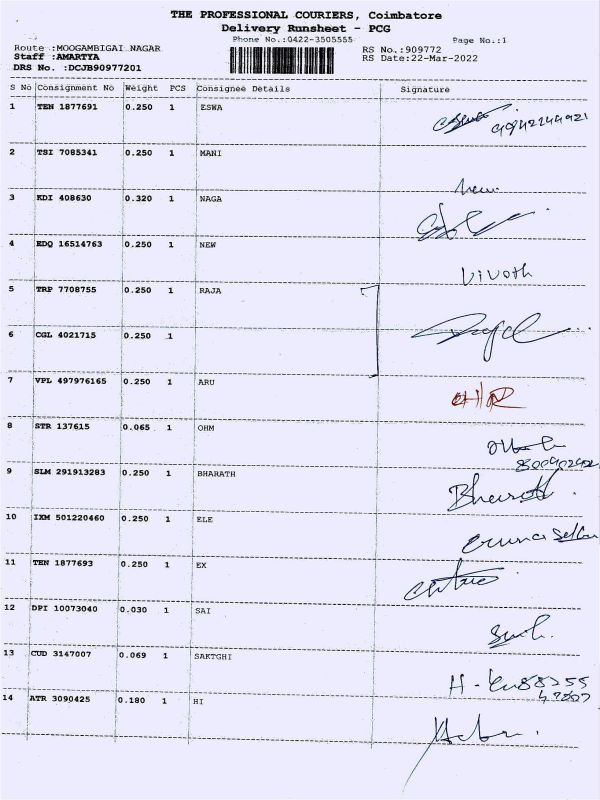 THE PROFESSIONAL COURIERS, Coimbatore
Delivery Runsheet - PCG
Phone No.:0422-3505555 Page No.:1
Route :MOOGAMBIGAI NAGAR RS No.:909772
Staff :AMARTYA RS Date:22-Mar-2022
DRS No. :DCJB90977201
S No Consignment No Weight PCS Consignee Details Signature
1 TEN 1877691 0.250 1 ESWA
2 TSI 7085341 0.250 1 MANI
3 KDI 408630 0.320 1 NAGA
4 EDQ 16514763 0.250 1 NEW
Vivoth
5 TRP 7708755 0.250 1 RAJA
6 CGL 4021715 0.250 1
7 VPL 497976165 0.250 1 ARU
8 STR 137615 0.065 1 OHM
9 SLM 291913283 0.250 1 BHARATH
Bharath
10 IXM 501220460 0.250 1 ELE
11 TEN 1877693 0.250 1 EX
12 DPI 10073040 0.030 1 SAI
13 CUD 3147007 0.069 1 SAKTGHI
14 ATR 3090425 0.180 1 HI